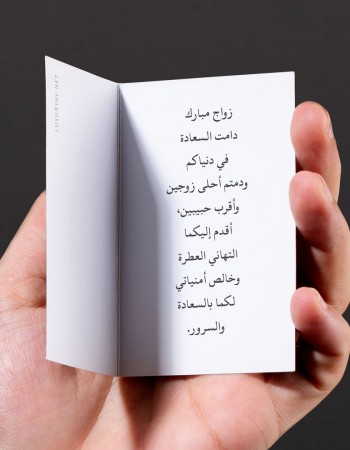 زواج مبارك
دامت السعادة
في دنياكم
ودمتم أحلى زوجين
وأقرب حبيبين،
أقدم إليكما
التهاني العطرة
وخالص أمنياتي
لكما بالسعادة
والسرور.